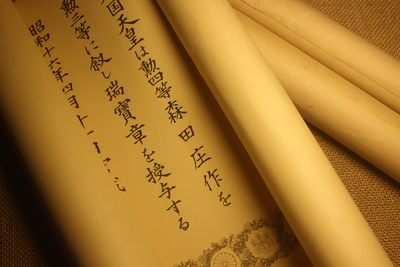 国天皇は勲四等森田庄作を
勲三等に叙し瑞寶章を授与する
昭和十六年四月